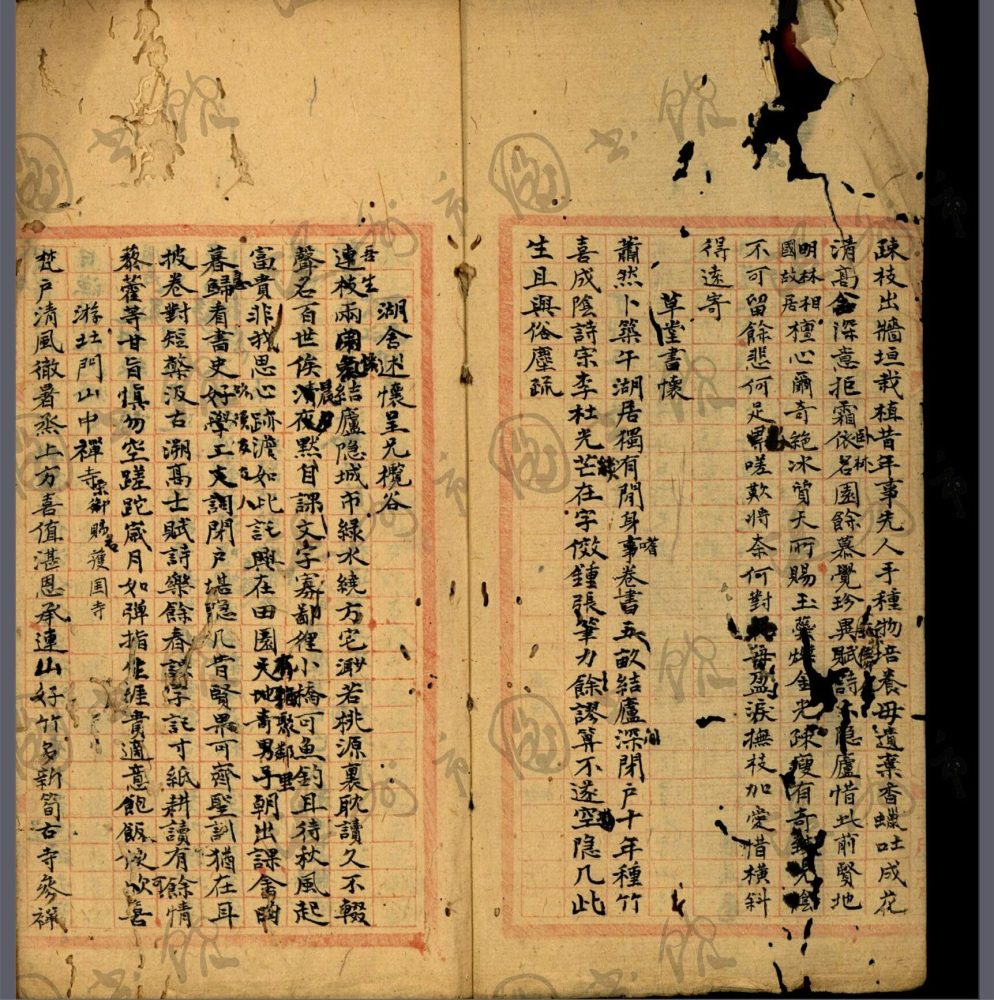 疎枝出牆垣栽植昔年事先人手種物培養毋遺棄香蠟吐成花
清高含深意拒霜依名園餘慕覺珍異賦詩隱廬惜此前賢地
卧林
明林相國故居
檀心爾奇絕冰質天所賜玉蘂爍金光疎瘦有奇
不可留餘悲何足累嗟歎將奈何對盈淚撫枝加愛惜橫斜
得遠寄
草堂書懷
蕭然卜築午湖居獨有閒身事卷書五畝結廬深閉戶十年種竹
嗜
喜成陰詩宗李杜光芒在字倣鍾張筆力餘謬算不遂空隱几此
生且與俗塵疏
湖舍述懷呈兄欖谷
吾生
連被雨結廬隱城市綠水繞方宅渺若桃源裏耽讀久不輟
聲名百世俟清夜默自課文字寡鄙俚小橋可魚釣且待秋風起
富貴非我思心跡澹如此託興在田園天地奇男子朝出課舍
有酒聚鄰里
暮歸看書史好學工文詞閉戶堪隱几昔賢果可齊聖訓猶在耳
披卷對短檠汲古溯高士賦詩樂餘春訪字記寸紙耕讀有餘情
藜藿等甘旨慎勿空蹉跎歲月如彈指生涯貴適意飽飯喜
游北門山中禪寺
宋御賜名護国寺
梵戶清風徹暑烝上方喜值湛恩承連山好竹多新筍古寺參禪